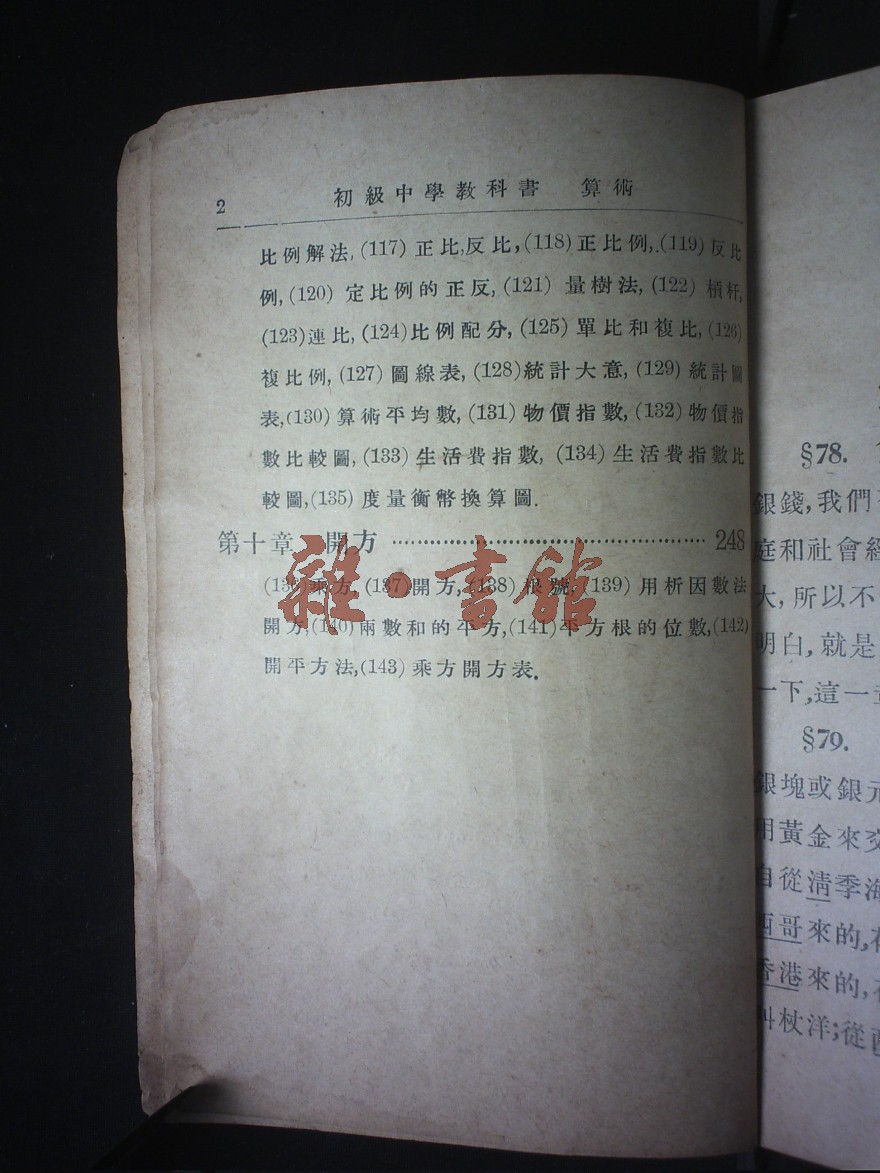 2 初級中學教科書 算術
比例解法,(117) 正比,反比,(118)正比例,(119)反比
例,(120) 定比例的正反,(121) 量樹法,(122) 槓杆,
(123)連比,(124)比例配分,(125)單比和複比,(126)
複比例,(127)圖線表,(128)統計大意,(129)統計圖
表,(130)算術平均數,(131)物價指數,(132)物價指
數比較圖,(133)生活費指數,(134)生活費指數比
較圖,(135)度量衡幣換算圖.
第十章 開方 248
(136)乘方,(137)開方,(138)根號,(139)用析因數法
開方,(140)兩數和的平方,(141)平方根的位數,(142)
開平方法,(143)乘方開方表.
雜·書館
§78.
銀錢,我們
庭和社會經
大,所以不
明白,就是
一下,這一
§79.
銀塊或銀元
用黃金來交
自從清季海
西哥來的,在
香港來的,
叫杖洋;從